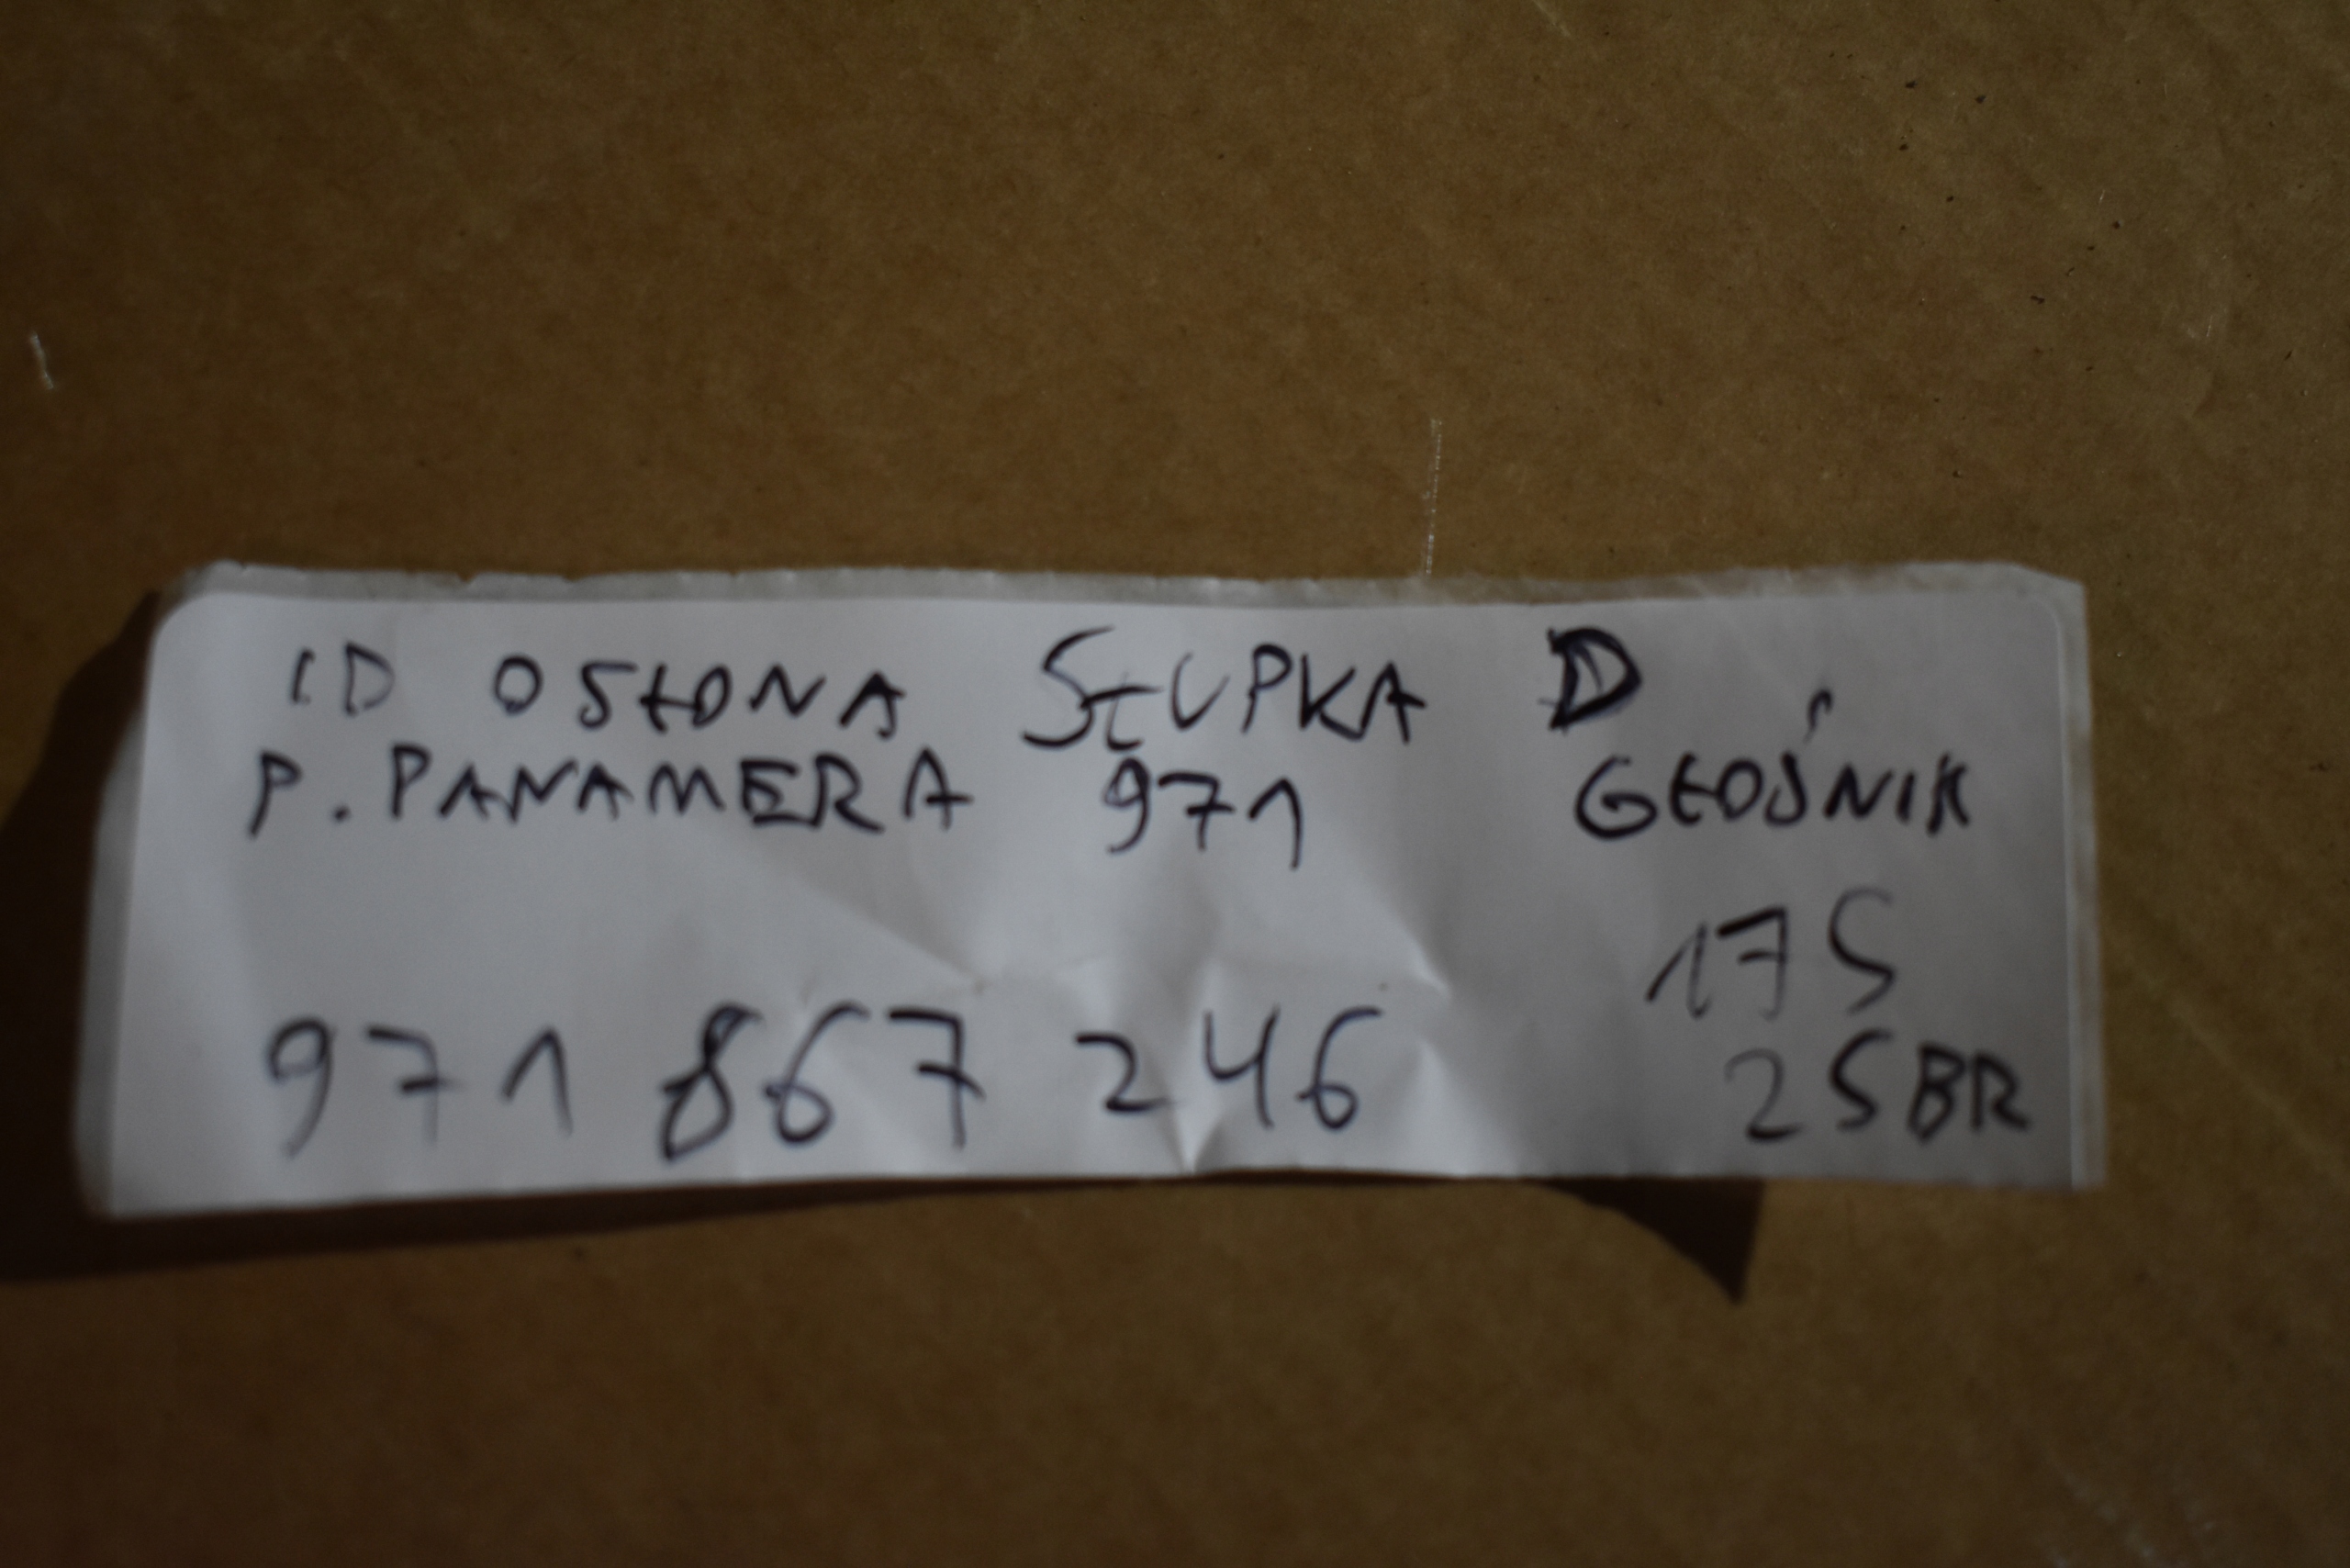 ID OSŁONA SŁUPKA D
P. PANAMERA 971 GŁOŚNIK
175
971 867 246
25BR